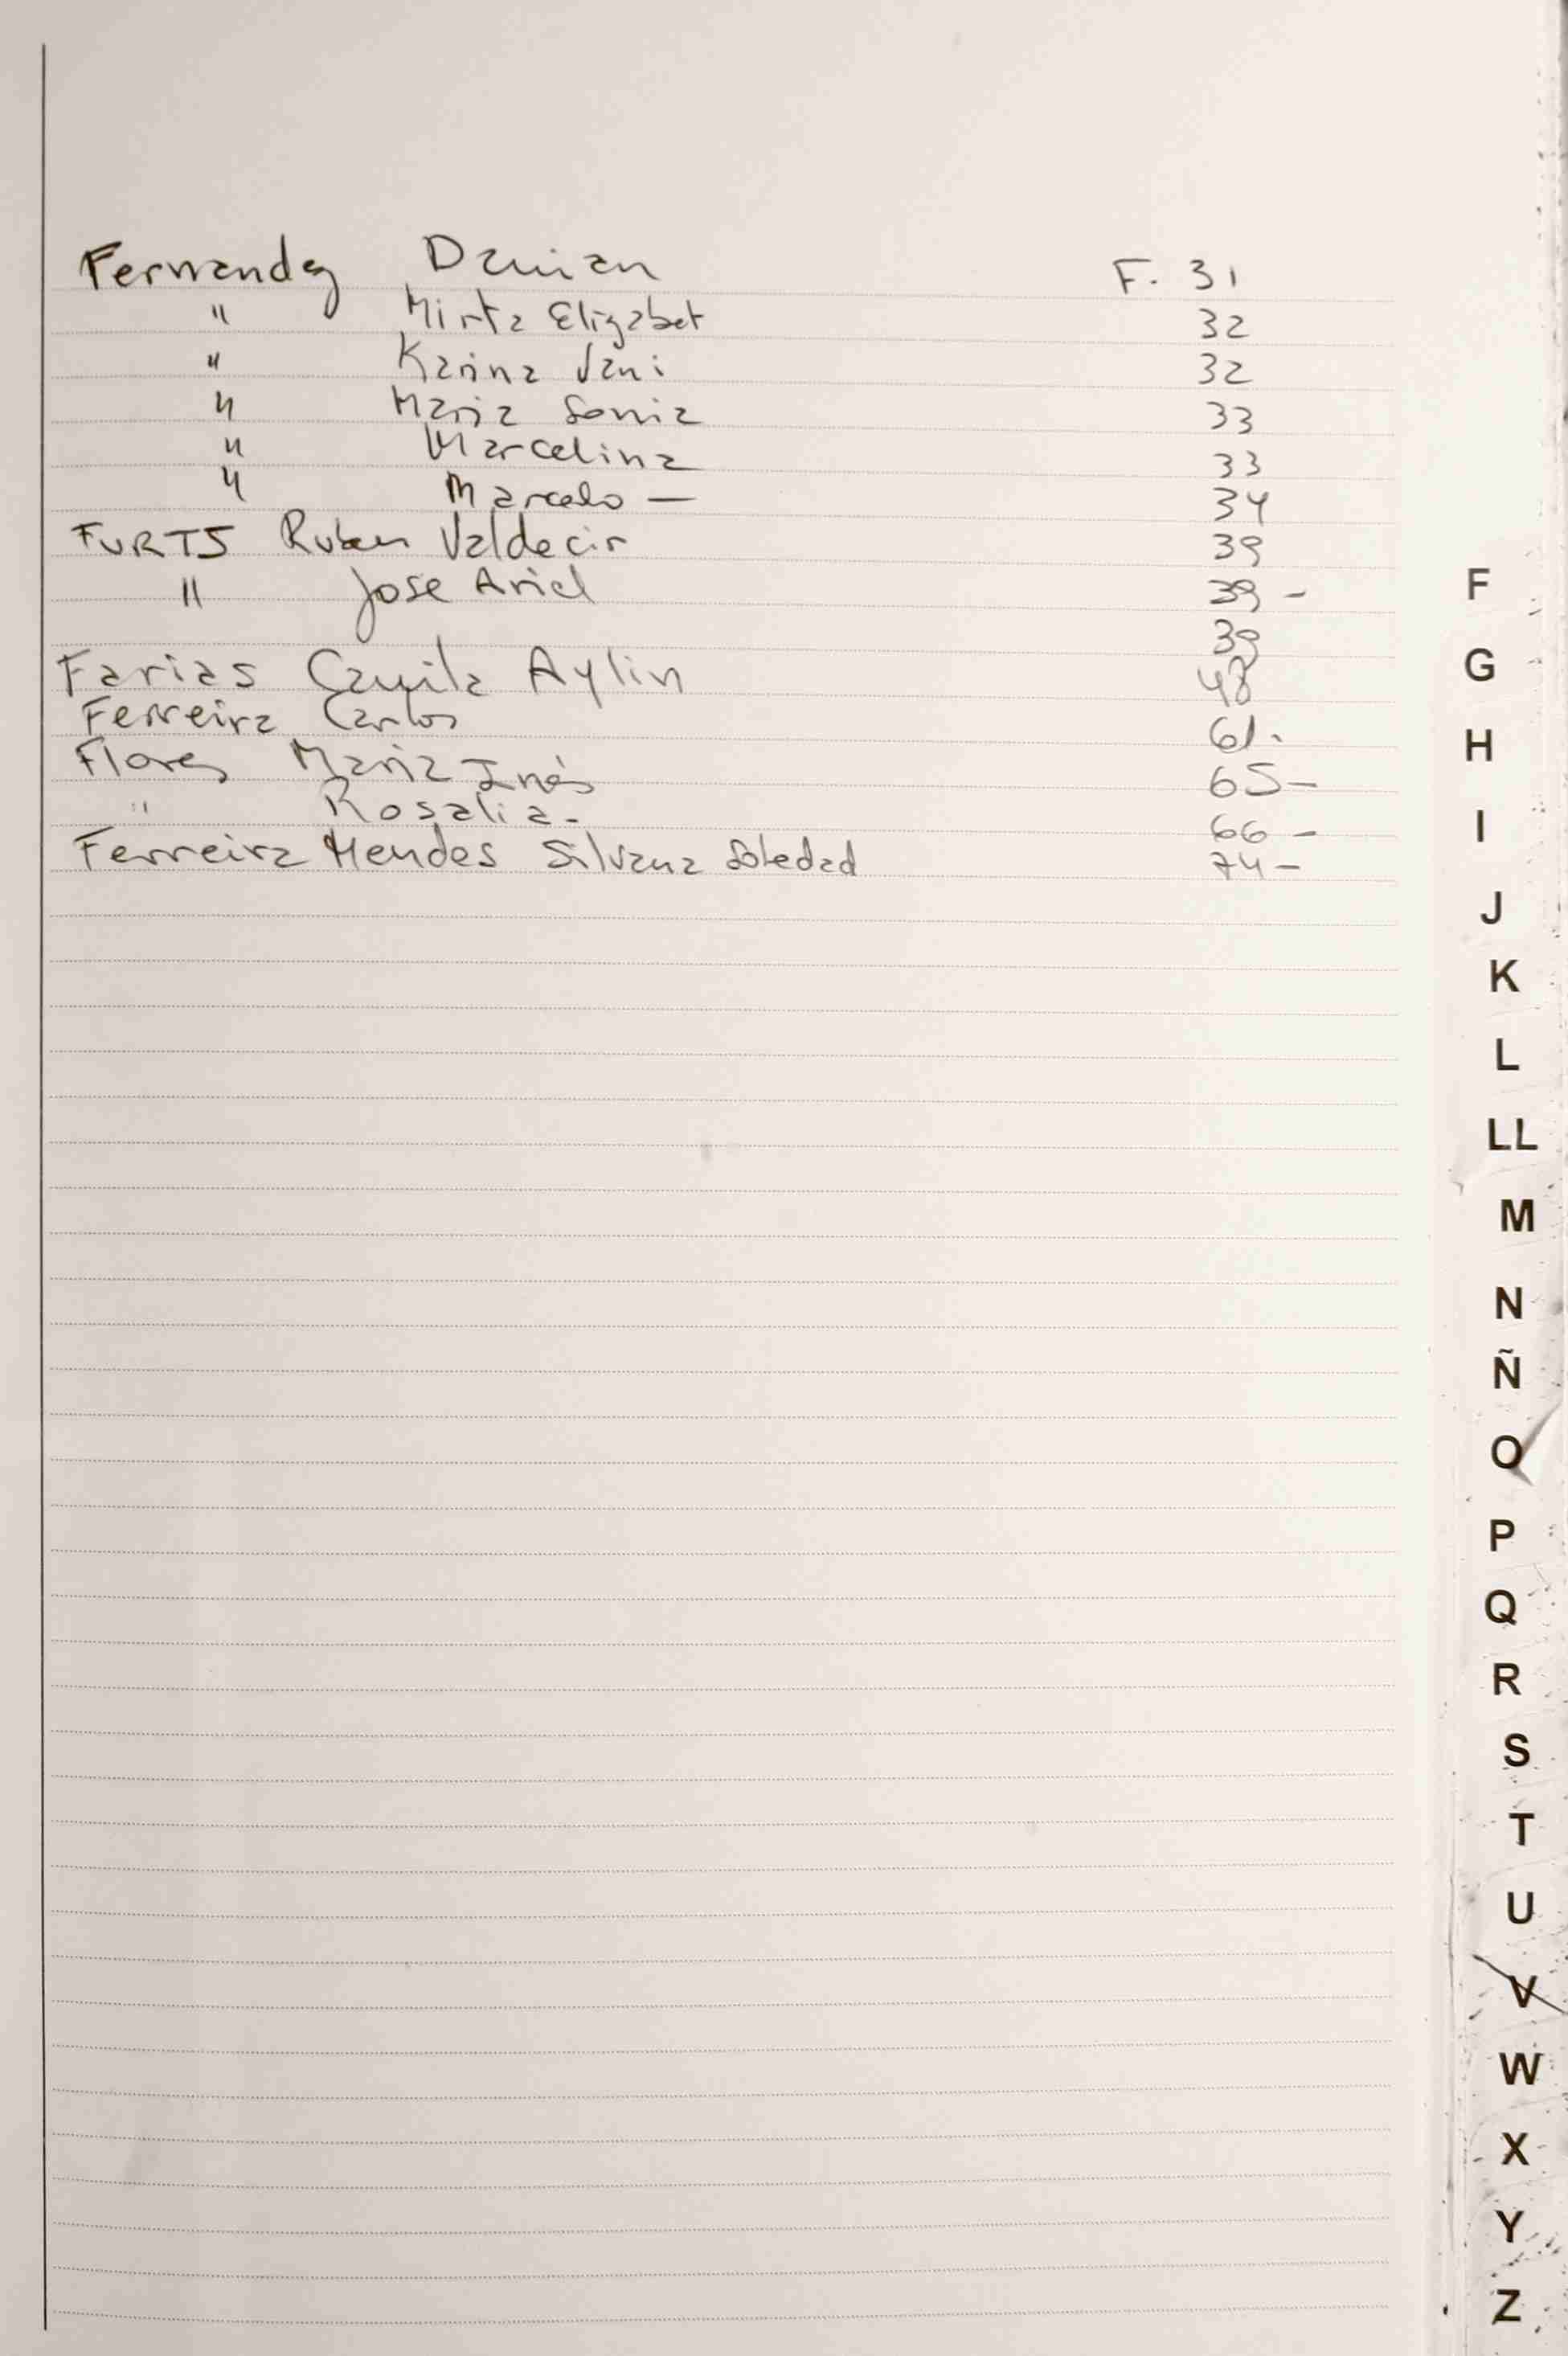 Fernandez Damian F. 31
" Mirta Elizabet 32
" Karina Vani 32
" Maria Sonia 33
" Marcelina 33
" Marcelo — 34
FURTS Ruben Valdecir 39
" Jose Ariel 39 -
39
Farias Camila Aylin 48
Ferreira Carlos 61.
Flores Maria Inés 65-
" Rosalia - 66 -
Ferreira Mendes Silvana Soledad 74-
F
G
H
I
J
K
L
LL
M
N
Ñ
O
P
Q
R
S
T
U
V
W
X
Y
Z